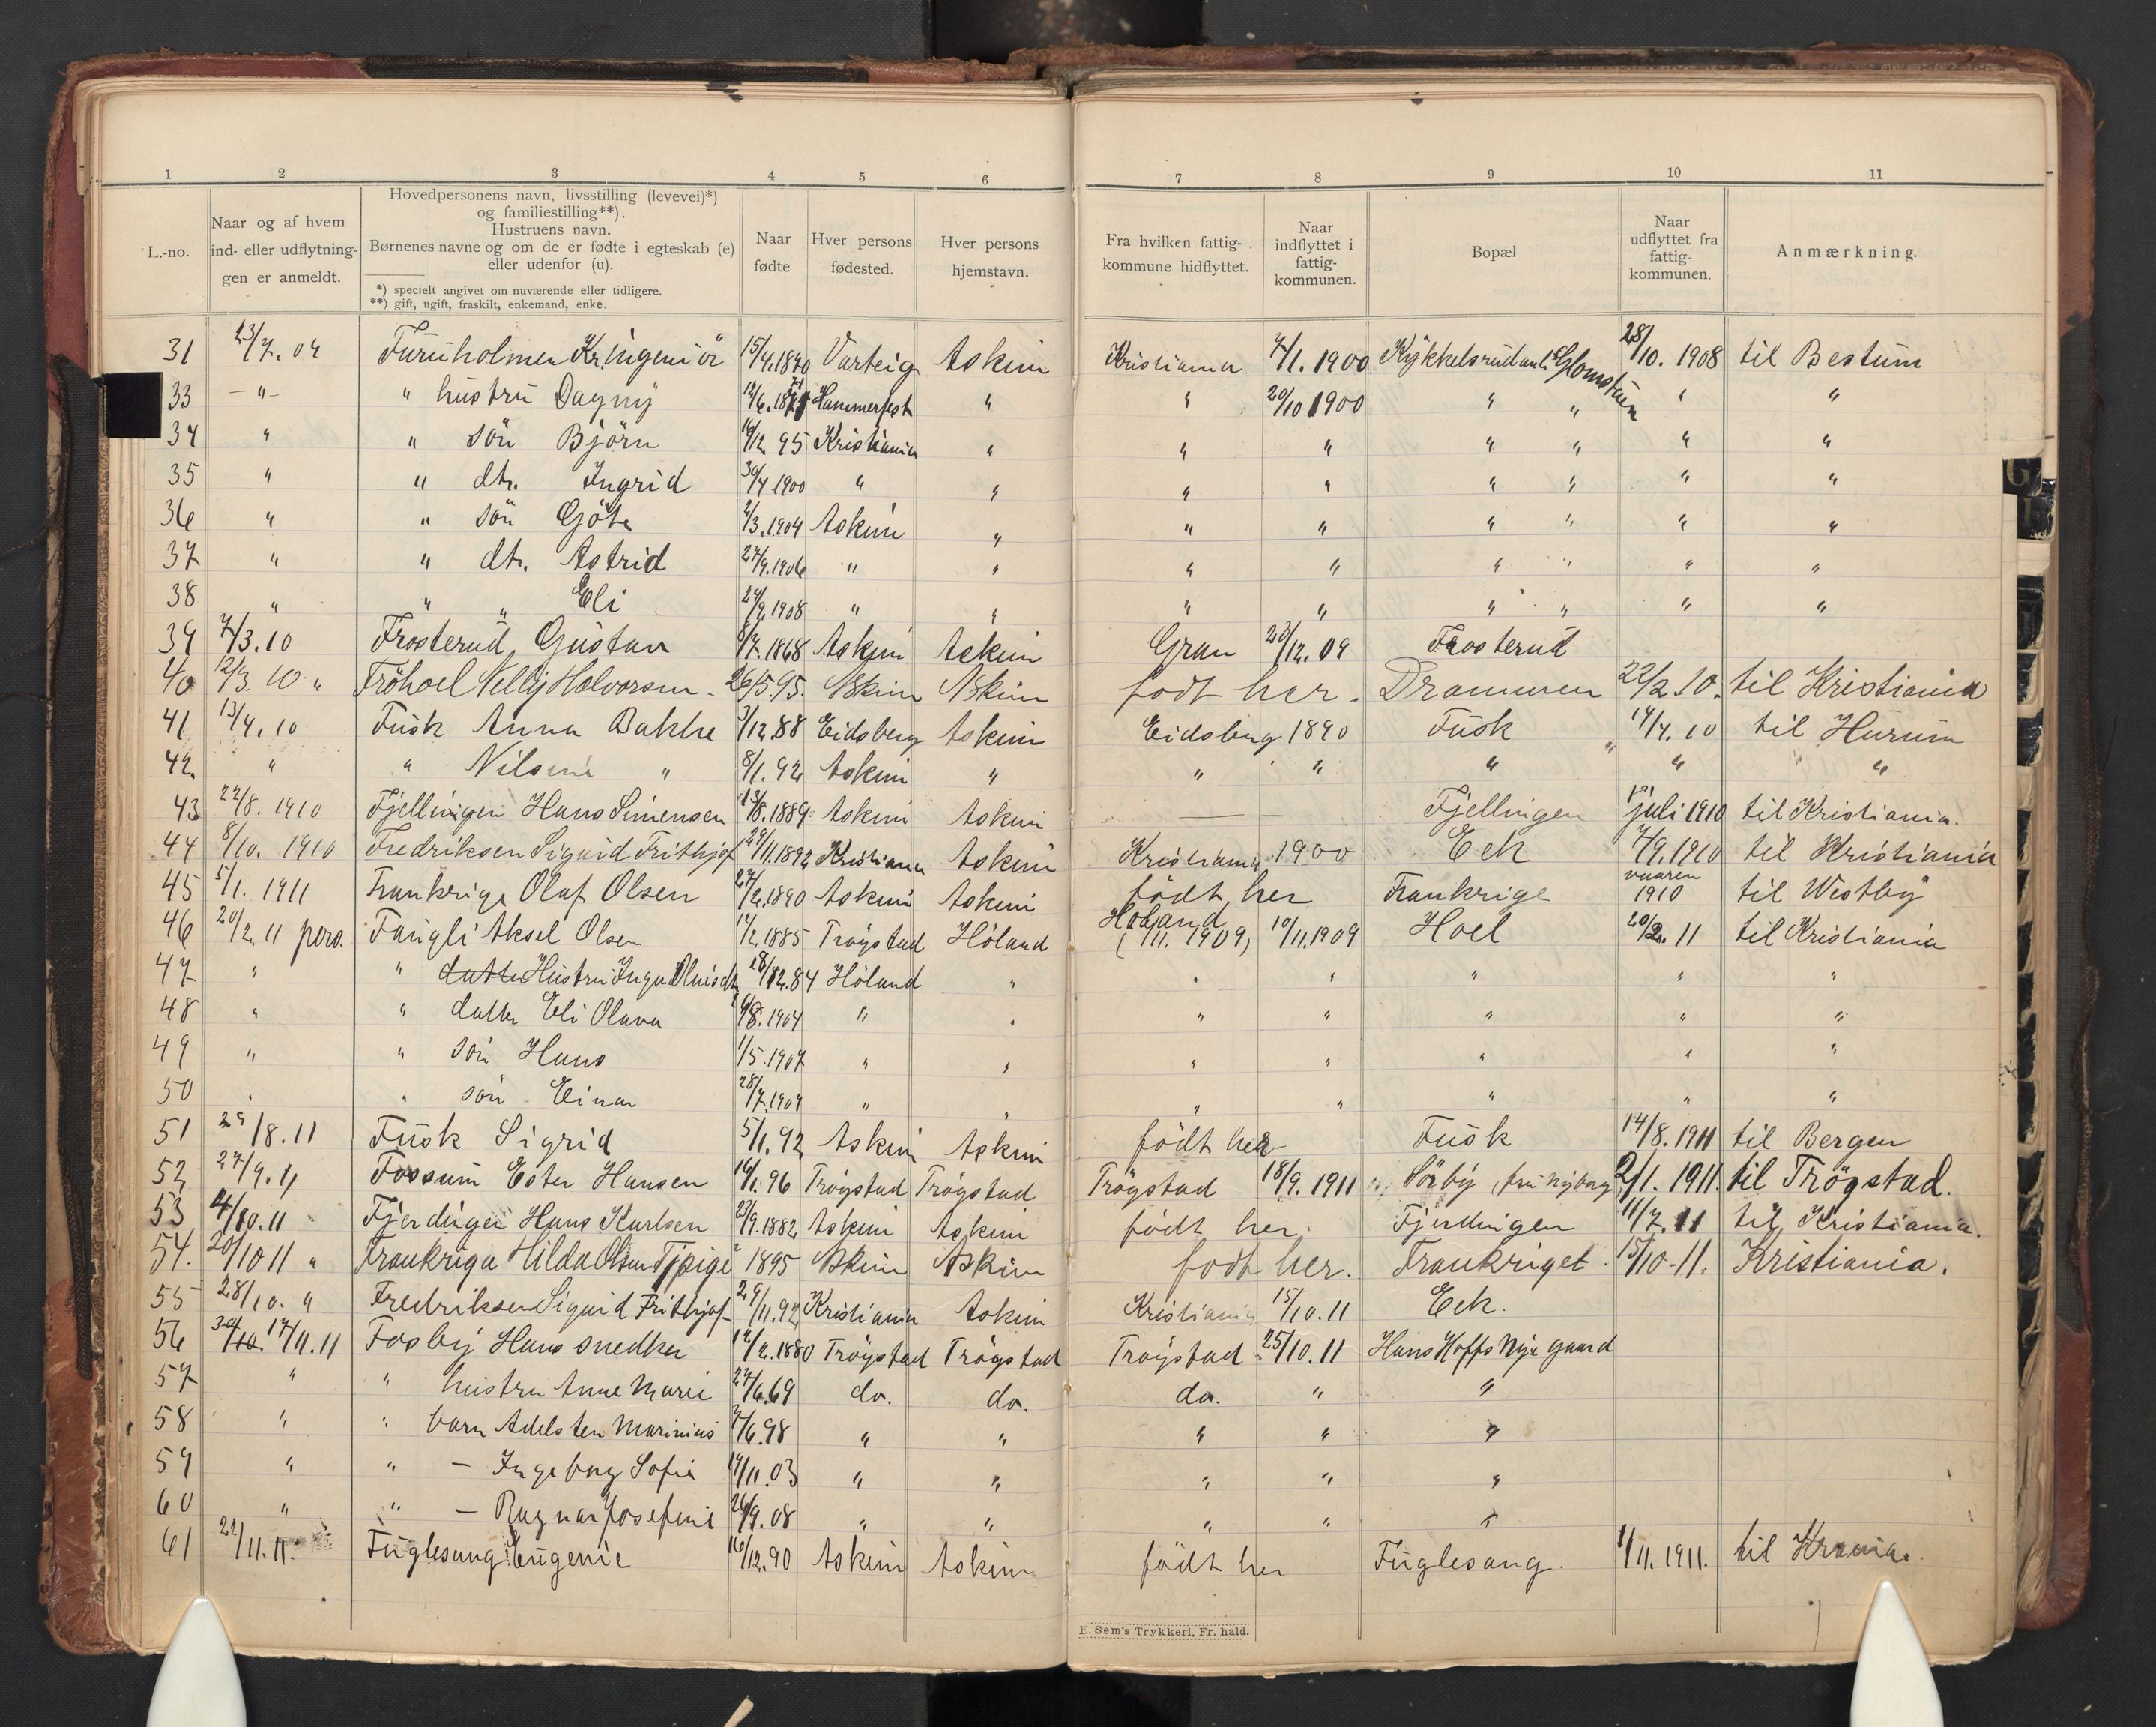 1 2 3 4 5 6 7 8 9 10 11
L.-no.
Naar og af hvem ind- eller udflytningen er anmeldt.
Hovedpersonens navn, livsstilling (levevei)*) og familiestilling**). Hustruens navn. Børnenes navne og om de er fødte i egteskab (e) eller udenfor (u).
*) specielt angivet om nuværende eller tidligere.
**) gift, ugift, fraskilt, enkemand, enke.
Naar fødte
Hver persons fødested.
Hver persons hjemstavn.
Fra hvilken fattig-kommune hidflyttet.
Naar indflyttet i fattig-kommunen.
Bopæl
Naar udflyttet fra fattig-kommunen.
Anmærkning.
31 23/7. 09 Furuholmen Kr. Ingeniör 15/4. 1870 Varteig Askim Kristiania 7/1. 1900 Kykkelsrudanl. Glomstuen 28/10. 1908 til Bestum
33 -"- " hustru Dagny Hammerfest " " 20/10 1900 " " " "
34 " " sön Björn 95 Kristiania " " " " " " "
35 " " dtr. Ingrid 30/4 1900 " " " " " " " "
36 " " sön Göte 2/3. 1904 Askim " " " " " " "
37 " " dtr. Astrid 27/9. 1906 " " " " " " " "
38 " " " Eli 1908 " " " " " " " "
39 7/3. 10 Frosterud, Gustav 8/7. 1868 Askim Askim Gran 23/12. 09 Frosterud
40 12/3. 10 " Fröhoel Nelly Halvorsen 26/5. 95. Askim Askim født her. Drammen 22/2 10. til Kristiania
41 13/4. 10 Fusk Anna Bakke 3/12. 88 Eidsberg Askim Eidsberg 1890 Fusk 14/4. 10 til Hurum
42. " " Nilsine " 8/1. 92 Askim " " " " " "
43 22/8. 1910 Fjellingen Hans Simensen 13/8. 1889 Askim Askim — — Fjellingen juli 1910 til Kristiania.
44 8/10. 1910 Fredriksen Sigurd Frithjof 29/11. 1892 Kristiania Askim Kristiania 1900 Eek 7/9. 1910 til Kristiania
45 5/1. 1911 Frankrige Olaf Olsen 27/2. 1890 Askim Askim født her Frankrige vaaren 1910 til Westby
46 20/2. 11 pers. Fuugli Aksel Olsen 14/2. 1885 Trøgstad Höland Höland (1/11. 1909) 10/11. 1909 Hoel 20/2. 11 til Kristiania
47 " " Hustru Inga 18/12. 84 Höland " " " " " "
48 " " datter Eli Olava 1904 " " " " " " "
49 " " sön Hans 1/5. 1907 " " " " " " "
50 " " sön Einar 28/7. 1909 " " " " " " "
51 29/8. 11 Fusk Sigrid 5/1. 92 Askim Askim födt her Fusk 14/8. 1911 til Bergen
52 27/9. 11 Fossum Ester Hansen 16/1. 96 Trögstad Trögstad Trögstad 18/9. 1911 Sörby, 2/1. 1911. til Trögstad.
53 4/10. 11 Fjerdingen Hans Karlsen 23/9. 1882 Askim Askim födt her Fjerdingen 11/7. 11 til Kristiania.
54. 20/10 11 " Frankriga Hilda Olsen Tjpige 1895 Askim Askim født her. Frankriget 15/10-11. Kristiania.
55 28/10. " Fredriksen Sigurd Frithjof 29/11. 92 Kristiania Askim Kristiania 15/10. 11 Eek.
56 30/10. 17/11. 11 Fosby Hans snedker 1880 Trögstad Trögstad Trögstad 25/10. 11 Hans Hoffs Nye gaard
57 " " hustru Anne Marie 27/6. 69 do. do. do. " "
58 " " barn Adelsten Marinius 7/6. 98 " " " " "
59 " " — Ingeborg Sofie 14/11. 03 " " " " "
60 " " — Ragnar Josefine 26/9. 08 " " " " "
61 22/11. 11. Fuglesang Eugenie 16/12. 90 Askim Askim födt her Fuglesang. 1/11. 1911. til Krania.
E. Sem's Trykkeri, Fr. hald.